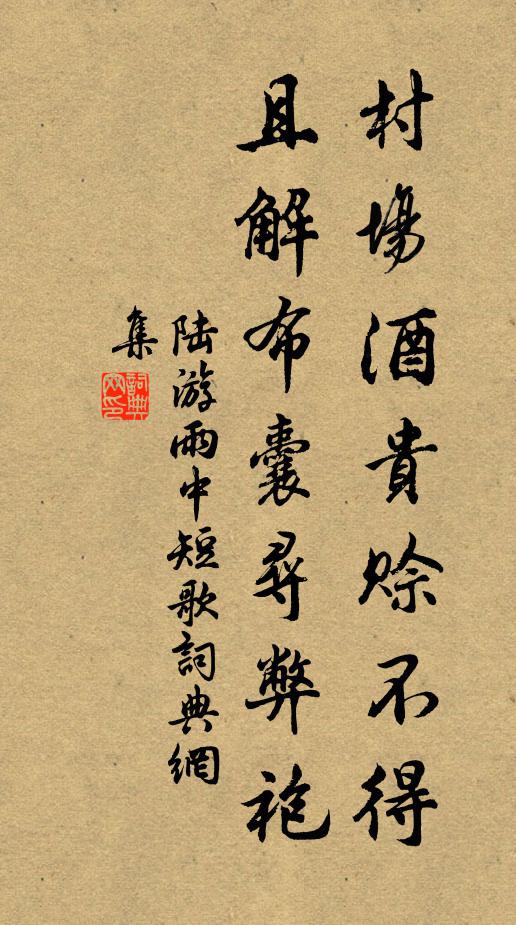 村場酒貴賒不得
且解布囊尋弊袍
陆游雨中短歌詞典網
集
詞典
网印